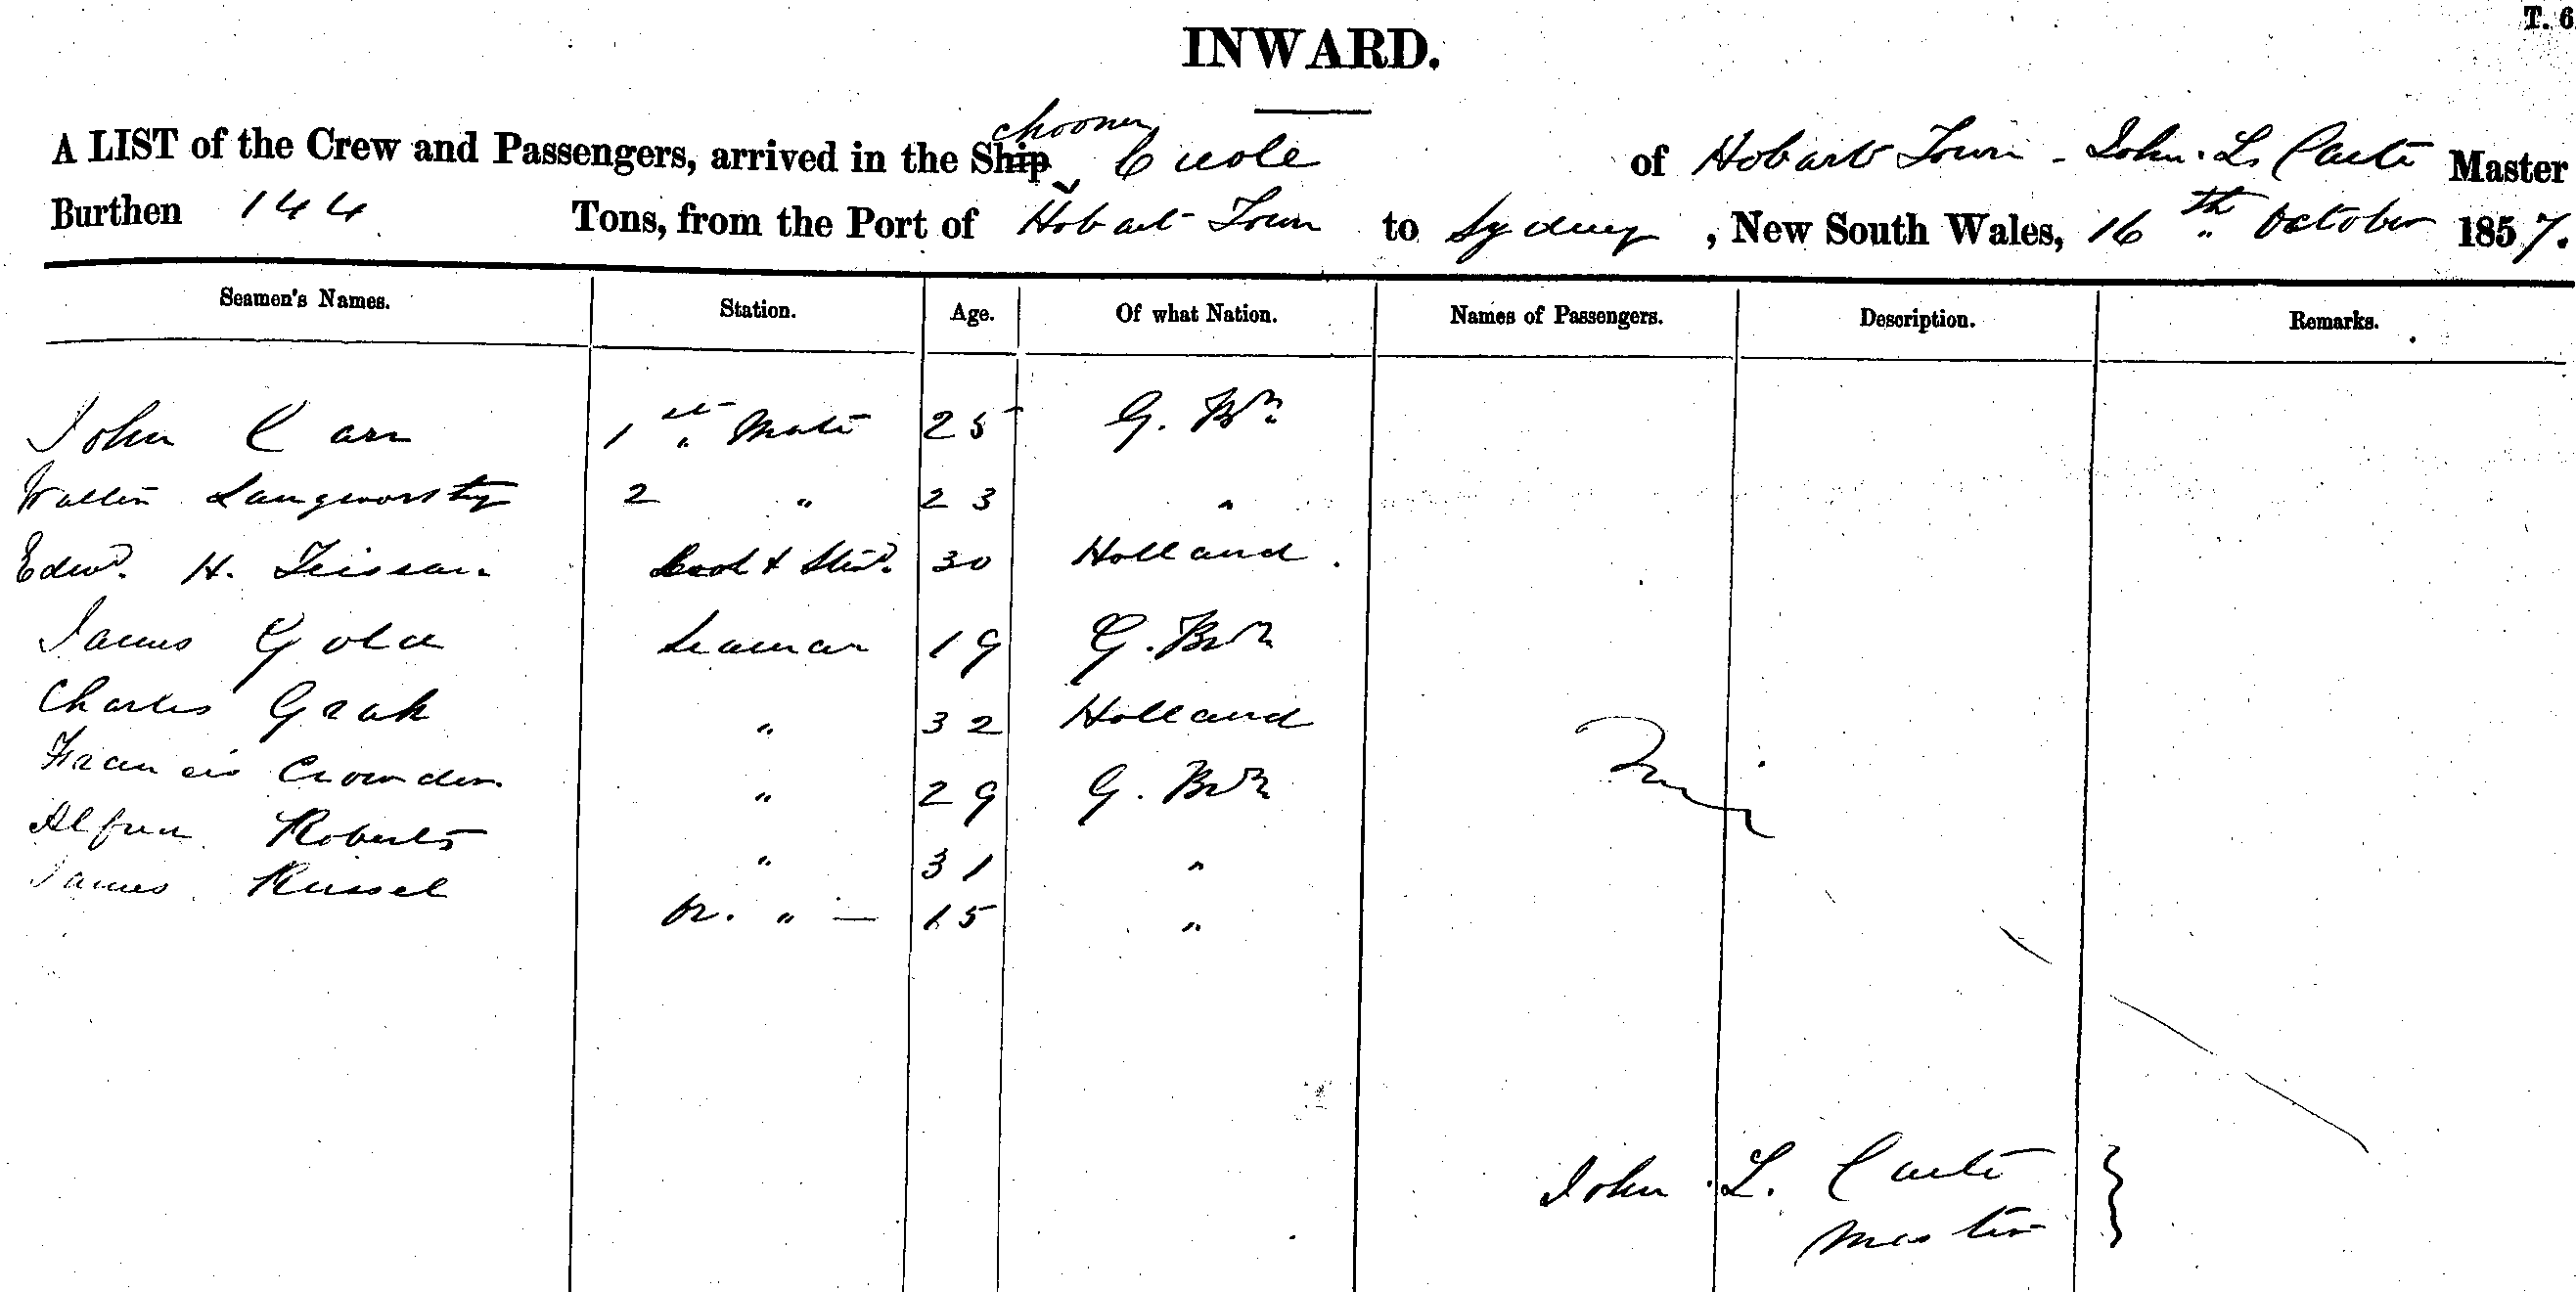 T. 6
INWARD.
chooner
A LIST of the Crew and Passengers, arrived in the Ship Creole of Hobart Town - John. L. Carter Master
Burthen 144 Tons, from the Port of Hobart Town to Sydney, New South Wales, 16th October 1857.
Seamen's Names. Station. Age. Of what Nation. Names of Passengers. Description. Remarks.
John Carr 1st Mate 25 G. Brn
Walter Langworthy 2 " 23 "
Edwd. H. Cook & Stwd. 30 Holland.
James Gold Seaman 19 G. Brn
Charles Graah " 32 Holland
Francis Crowden " 29 G. Brn
Alfred Roberts " 31 "
James Russel Or. " — 15 "
John L. Carter
Master